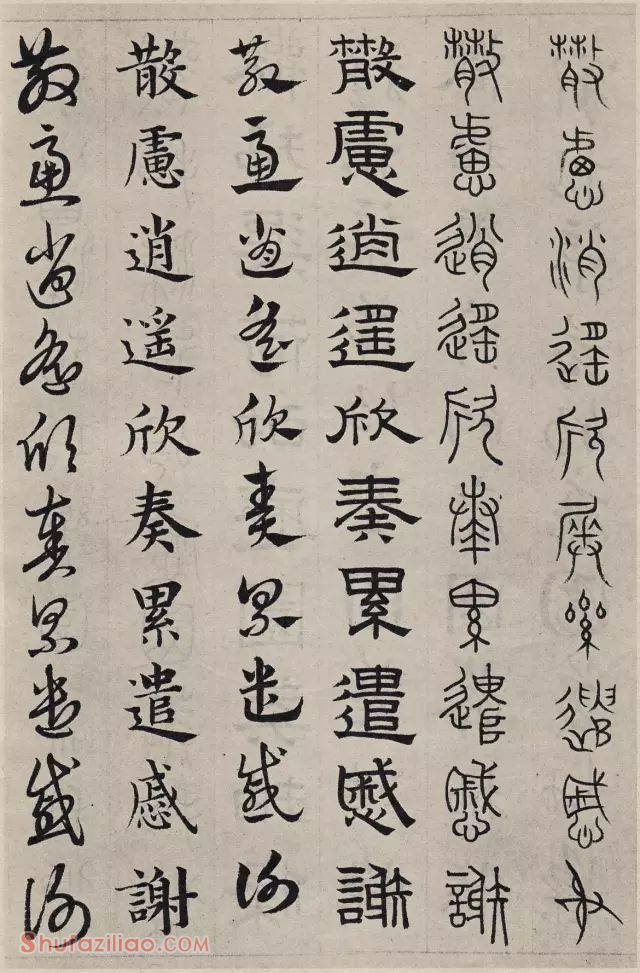 散慮逍遙欣奏累遣慼謝
散慮逍遙欣奏累遣慼謝
散慮逍遙欣奏累遣慼謝
散慮逍遙欣奏累遣慼謝
散慮逍遥欣奏累遣慼謝
散慮逍遙欣奏累遣慼謝
Shufaziliao.COM